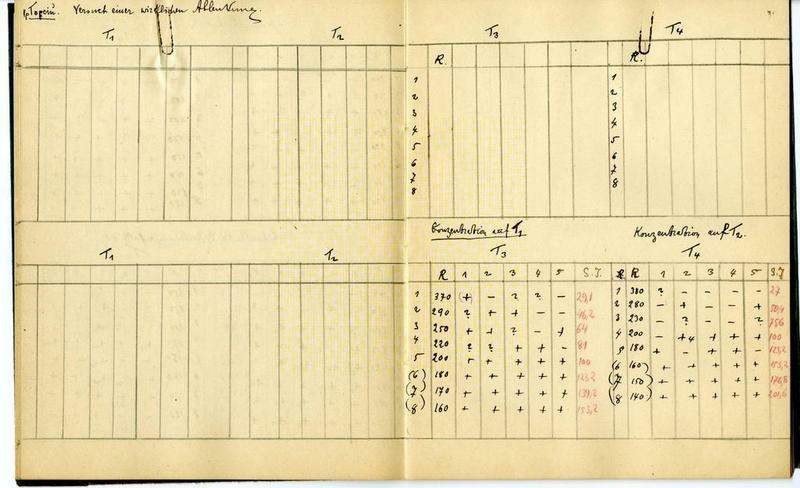 Versuch einer wirklichen Ablenkung.
T1 T2 T3 T4
R. R.
1 1
2 2
3 3
4 4
5 5
6 6
7 7
8 8
Konzentration auf T1 Konzentration auf T2.
T1 T2 T3 T4
R 1 2 3 4 5 S.J. R R 1 2 3 4 5 S.J
1 370 (+) – ? ? – 29,1 1 380 ? – – – – 27
2 290 ? + + – – 46,2 2 280 – + – – + 50,4
3 250 + + ? – + 64 3 230 – ? – – ? 75,6
4 220 ? ? + + – 81 4 200 – + + + + 100
5 200 + + + + + 100 5 180 + – + + – 123,2
(6) 180 + + + + + 123,2 (6 160) + + + + + 153,2
(7) 170 + + + + + 139,2 (7 150) + + + + + 176,8
(8) 160 + + + + + 153,2 (8 140) + + + + + 201,6